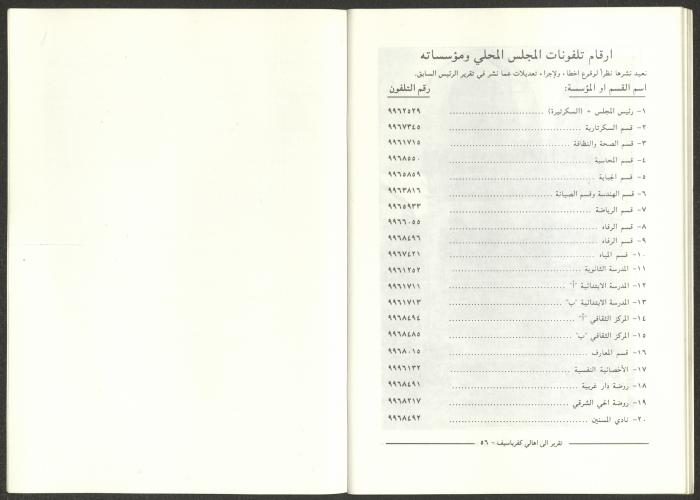 ارقام تلفونات المجلس المحلي ومؤسساته
نعيد نشرها نظراً لوقوع اخطاء ولإجراء تعديلات عما نشر في تقرير الرئيس السابق.
اسم القسم او المؤسسة: رقم التلفون
١- رئيس المجلس + (السكرتيرة) ٩٩٦٢٥٢٩
٢- قسم السكرتارية ٩٩٦٧٣٤٥
٣- قسم الصحة والنظافة ٩٩٦١٧١٥
٤- قسم المحاسبة ٩٩٦٨٥٥٠
٥- قسم الجباية ٩٩٦٥٨٥٩
٦- قسم الهندسة وقسم الصيانة ٩٩٦٣٨١٦
٧- قسم الرياضة ٩٩٦٥٩٣٣
٨- قسم الرفاه ٩٩٦٦٠٥٥
٩- قسم الرفاه ٩٩٦٨٤٩٦
١٠- قسم المياه ٩٩٦٧٤٢١
١١- المدرسة الثانوية ٩٩٦١٢٥٢
١٢- المدرسة الابتدائية "أ" ٩٩٦١٧١١
١٣- المدرسة الابتدائية "ب" ٩٩٦١٧١٣
١٤- المركز الثقافي "أ" ٩٩٦٨٤٩٤
١٥- المركز الثقافي "ب" ٩٩٦٨٤٨٥
١٦- قسم المعارف ٩٩٦٨٠١٥
١٧- الأخصائية النفسية ٩٩٩٦١٣٢
١٨- روضة دار غريبة ٩٩٦٨٤٩١
١٩- روضة الحي الشرقي ٩٩٦٨٢١٧
٢٠- نادي المسنين ٩٩٦٨٤٩٢
تقرير الى اهالي كفرياسيف - ٥٦